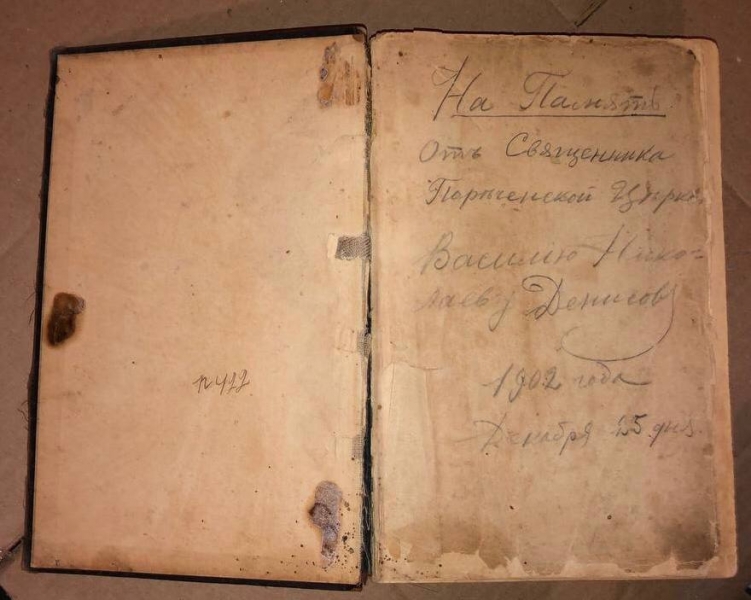 На Память
Отъ Священника
Порѣченской Церкви
Василію Нико-
лаеву Денисову
1902 года
Декабря 25 дня.